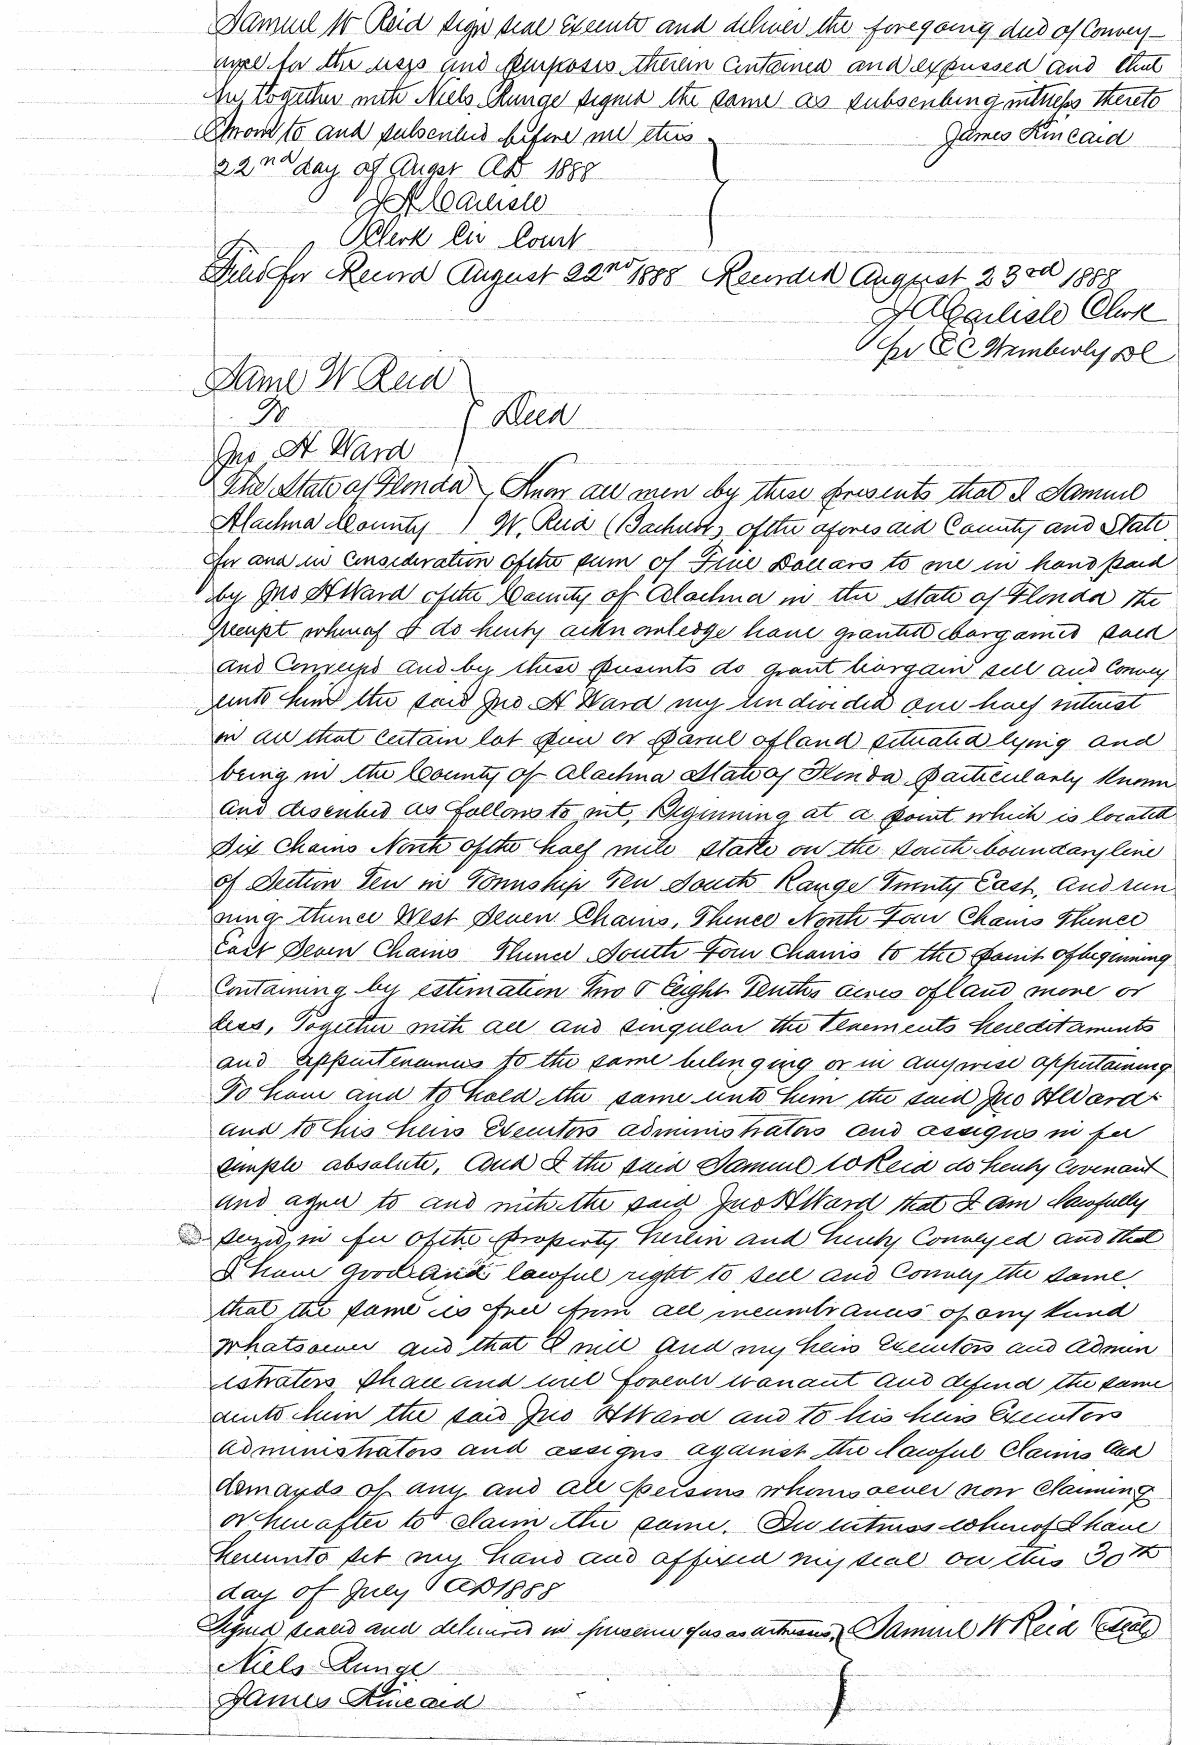 Samuel W Reid sign seal Execute and deliver the foregoing deed of Convey-
ance for the uses and purposes therein Contained and expressed and that
he together with Niels Runge signed the same as subscribing witness thereto
Sworn to and subscribed before me this James Kincaid
22nd day of Augst AD 1888
J A Carlisle
Clerk Cir Court
Filed for Record August 22nd 1888 Recorded August 23rd 1888
J A Carlisle Clerk
per E C Wimberly DC
Saml W Reid
To
Deed
Jno H Ward
The State of Florida Know all men by these presents that I Samuel
Alachua County W. Reid (Bachelor) of the aforesaid County and State
for and in Consideration of the sum of Five Dollars to me in hand paid
by Jno H Ward of the County of Alachua in the State of Florida the
receipt whereof I do hereby acknowledge have granted bargained sold
and Conveyed and by these presents do grant bargain sell and Convey
unto him the said Jno H Ward my undivided one half interest
in all that certain lot piece or parcel of land situated lying and
being in the County of Alachua State of Florida particularly known
and described as follows to wit, Beginning at a point which is located
Six Chains North of the half mile stake on the south boundary line
of Section Ten in Township Ten South Range Twenty East, and run
ning thence West Seven Chains, Thence North Four Chains Thence
East Seven Chains Thence South Four Chains to the point of beginning
Containing by estimation Two & Eight Tenths acres of land more or
less, Together with all and singular the tenements hereditaments
and appurtenances to the same belonging or in anywise appertaining
To have and to hold the same unto him the said Jno H Ward
and to his heirs Executors administrators and assigns in fee
simple absolute, And I the said Samuel W Reid do hereby Covenant
and agree to and with the said Jno H Ward that I am lawfully
seized in fee of the property herein and hereby Conveyed and that
I have good and lawful right to sell and Convey the same
that the same is free from all incumbrances of any kind
whatsoever and that I will and my heirs Executors and admin
istrators shall and will forever warrant and defend the same
unto him the said Jno H Ward and to his heirs Executors
administrators and assigns against the lawful Claims and
demands of any and all persons whomsoever now claiming
or hereafter to claim the same. In witness whereof I have
hereunto set my hand and affixed my seal on this 30th
day of July AD 1888
Signed sealed and delivered in presence of us as witnesses, Samuel W Reid (Seal)
Niels Runge
James Kincaid